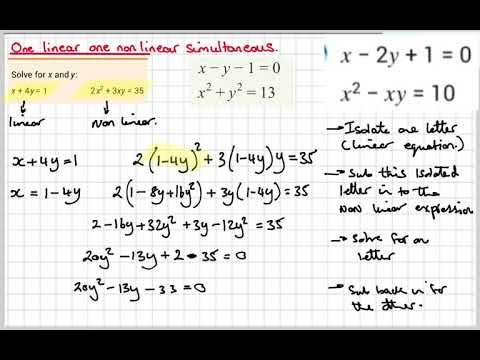 One linear one non linear simultaneous.
Solve for x and y:
x + 4y = 1
2x² + 3xy = 35
linear
Non linear.
x − y − 1 = 0
x² + y² = 13
x − 2y + 1 = 0
x² − xy = 10
x+4y=1
x = 1-4y
2(1-4y)² + 3(1-4y)y = 35
2(1-8y+16y²) + 3y(1-4y) = 35
2-16y+32y² + 3y-12y² = 35
20y² -13y + 2 - 35 = 0
20y² -13y - 33 = 0
→ Isolate one letter
(linear equation.)
→ Sub this Isolated
letter in to the
Non linear expression
→ Solve for on
letter
→ Sub back in for
the other.